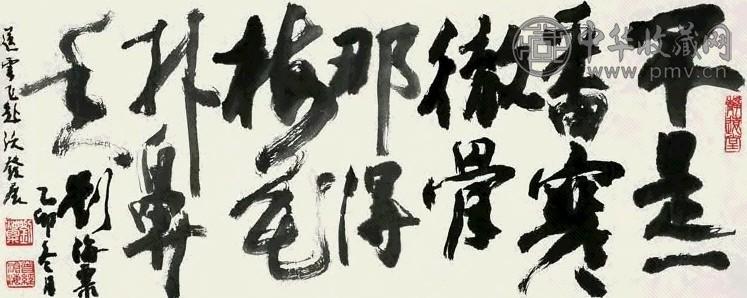 中华收藏网
www.pmv.cn
不是一
番寒
徹骨
那得
梅花
扑鼻
香
劉海粟
乙卯冬月
送雲飞赴法發展